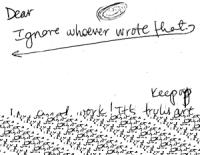 Dear
Ignore whoever wrote that
Keep up
work! It's truly art